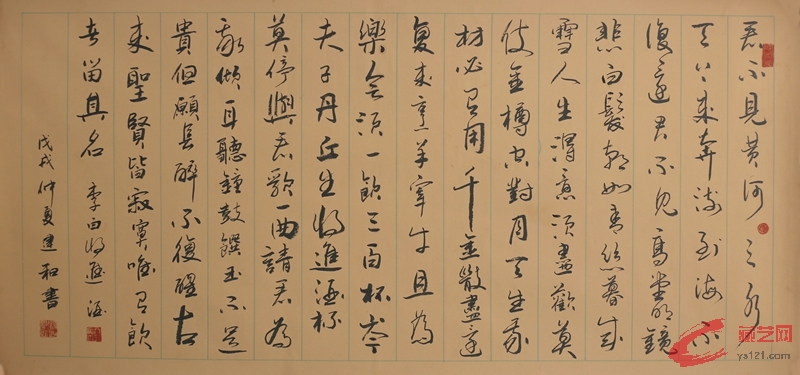 君不見黃河之水
天上來奔流到海不
復還君不見高堂明鏡
悲白髮朝如青絲暮成
雪人生得意須盡歡莫
使金樽空對月天生我
材必有用千金散盡還
復來烹羊宰牛且為
樂會須一飲三百杯岑
夫子丹丘生將進酒杯
莫停與君歌一曲請君為
我傾耳聽鐘鼓饌玉不足
貴但願長醉不復醒古
來聖賢皆寂寞唯有飲
者留其名 李白將進酒
戊戌仲夏建和書
艺网
ys121.com